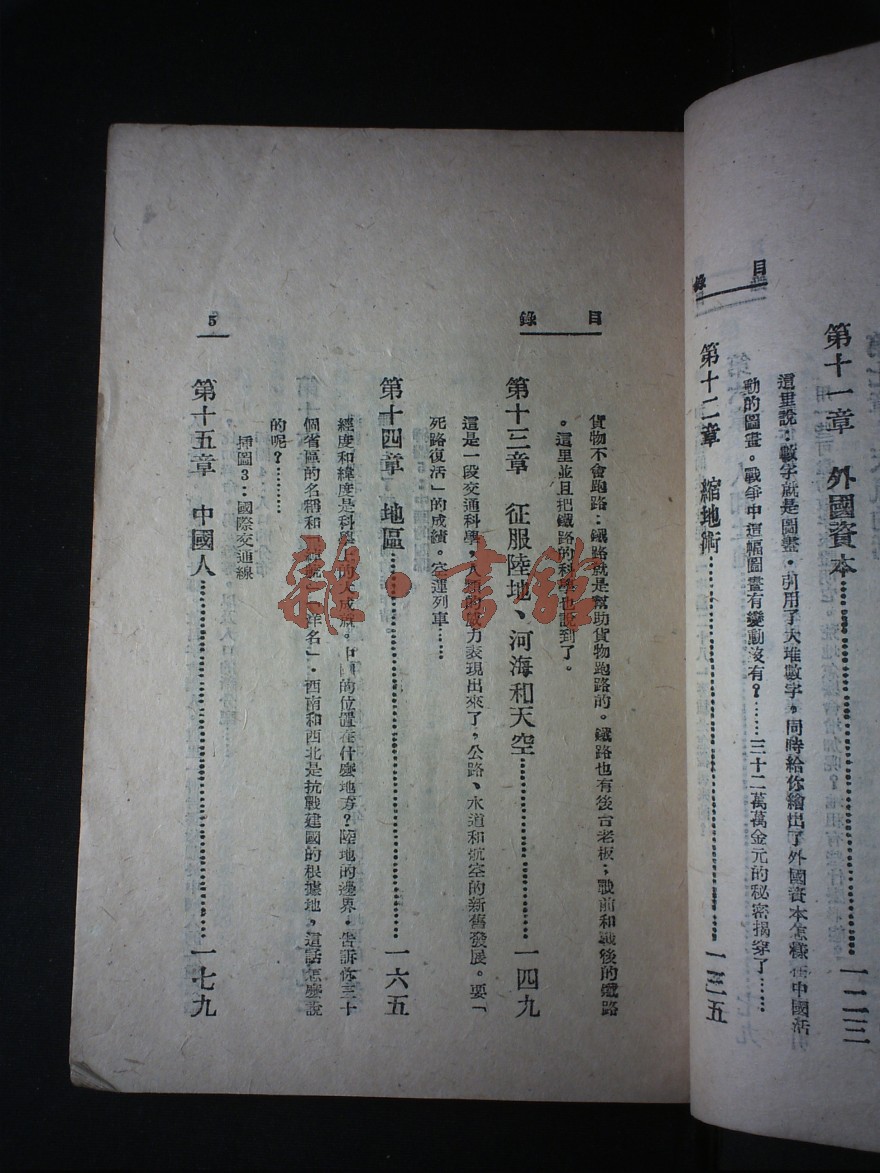 第十一章 外國資本……一二三
這里說：數字就是圖畫，引用了大堆數字，同時給你繪出了外國資本怎樣在中國活
動的圖畫。戰爭中這幅圖畫有變動沒有？……三十二萬萬金元的秘密揭穿了……
第十二章 縮地術……一三五
目錄
目錄
貨物不會跑路；鐵路就是幫助貨物跑路的。鐵路也有後台老板；戰前和戰後的鐵路
。這里並且把鐵路的科學也說到了。
第十三章 征服陸地、河海和天空……一四九
這是一段交通科學，人類的力表現出來了，公路、水道和航空的新舊發展。要「
死路復活」的成績。空運列車……
第十四章 地區……一六五
經度和緯度是科學上的大成。中國的位置在什麼地方？陸地的邊界，告訴你三十
個省區的名稱和「洋名」，西南和西北是抗戰建國的根據地，這話怎麼說
的呢？……
插圖3：國際交通線
第十五章 中國人……一七九
5
雜·書館